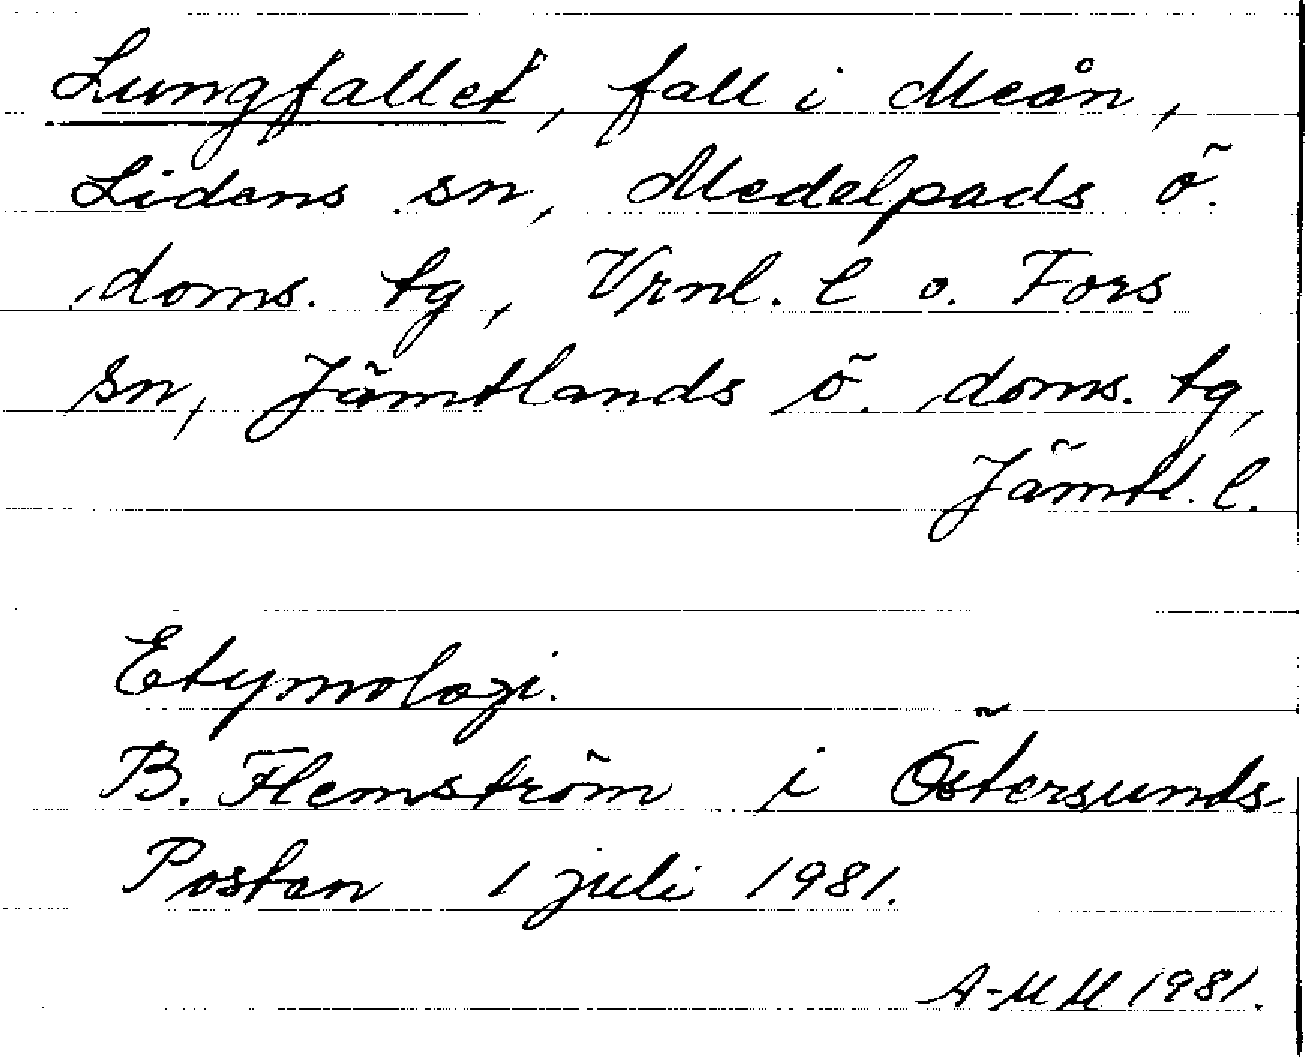 Lungfallet, fall i Meån,
Lidens sn, Medelpads ö.
doms. tg, Vrnl. l o. Fors
sn, Jämtlands ö. doms. tg,
Jämtl. l.
Etymologi.
B. Flemström i Östersunds-
Posten 1 juli 1981.
A-MM 1981.